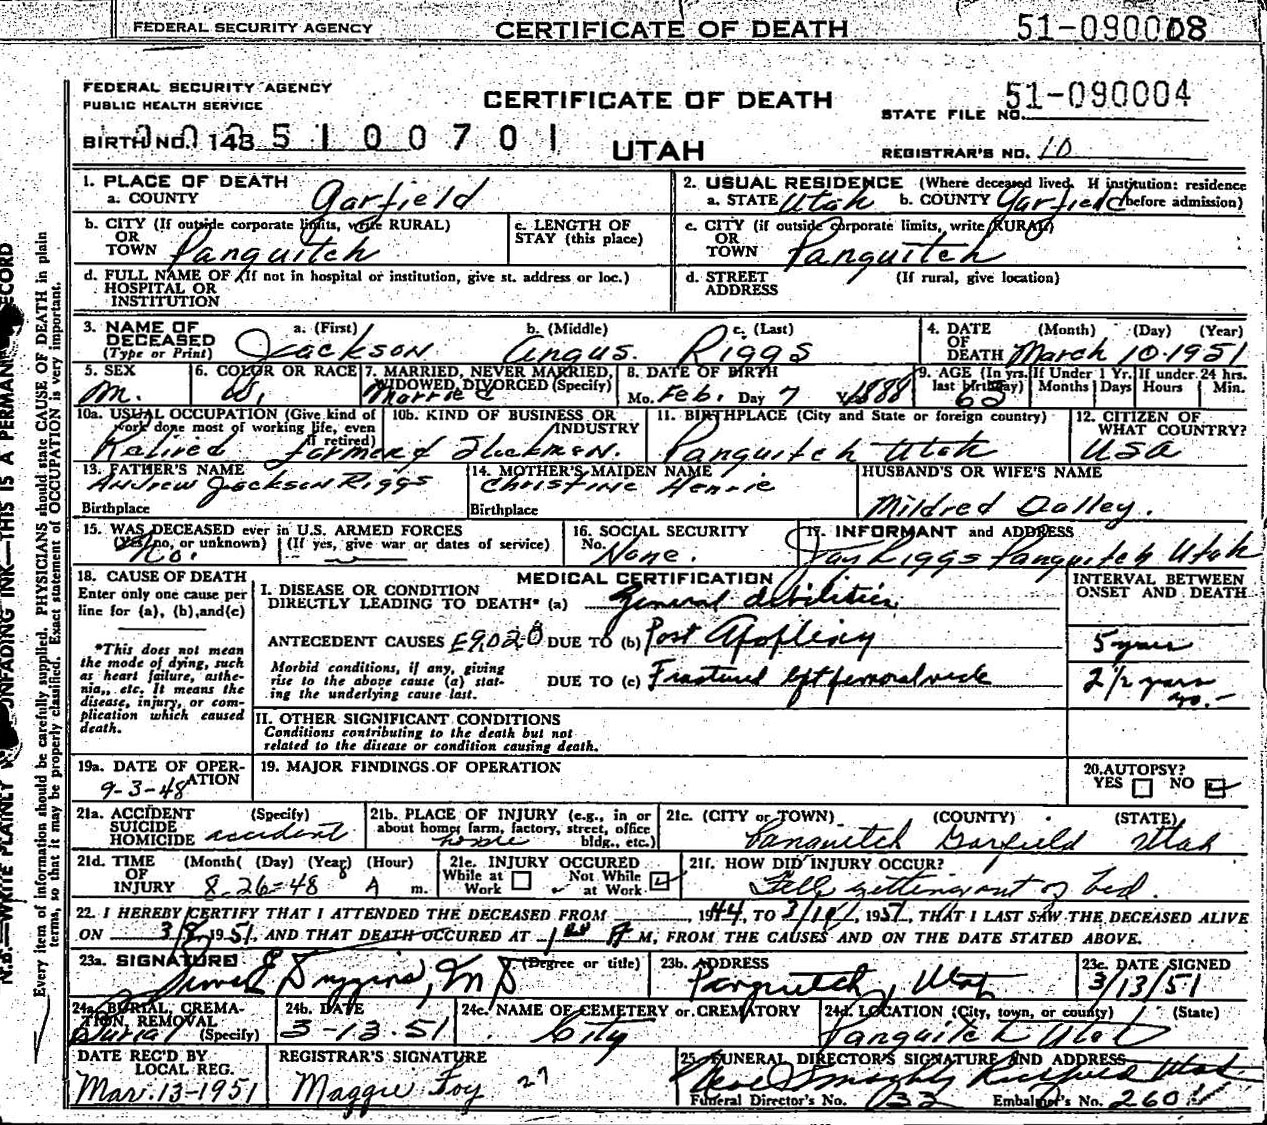 FEDERAL SECURITY AGENCY CERTIFICATE OF DEATH 51-090008
FEDERAL SECURITY AGENCY
PUBLIC HEALTH SERVICE
CERTIFICATE OF DEATH
51-090004
STATE FILE NO.
BIRTH NO. 143 5 1 0 0 7 0 1
UTAH
REGISTRAR'S NO. 10
1. PLACE OF DEATH
a. COUNTY Garfield
2. USUAL RESIDENCE (Where deceased lived. If institution: residence before admission)
a. STATE Utah b. COUNTY Garfield
b. CITY (If outside corporate limits, write RURAL)
OR
TOWN Panguitch
c. LENGTH OF
STAY (this place)
c. CITY (if outside corporate limits, write RURAL)
OR
TOWN Panguitch
d. FULL NAME OF (If not in hospital or institution, give st. address or loc.)
HOSPITAL OR
INSTITUTION
d. STREET (If rural, give location)
ADDRESS
3. NAME OF
DECEASED
(Type or Print)
a. (First) b. (Middle) c. (Last)
Jackson Angus. Riggs
4. DATE (Month) (Day) (Year)
OF
DEATH March 10-1951
5. SEX
M.
6. COLOR OR RACE
W.
7. MARRIED, NEVER MARRIED,
WIDOWED, DIVORCED (Specify)
Married
8. DATE OF BIRTH
Mo. Feb. Day 7 Yr. 1888
9. AGE (In yrs. last birthday)
If Under 1 Yr. Months Days
If under 24 hrs. Hours Min.
10a. USUAL OCCUPATION (Give kind of
work done most of working life, even
if retired)
Retired Farmer &
10b. KIND OF BUSINESS OR
INDUSTRY
11. BIRTHPLACE (City and State or foreign country)
Panguitch Utah
12. CITIZEN OF
WHAT COUNTRY?
USA
13. FATHER'S NAME
Andrew Jackson Riggs
Birthplace
14. MOTHER'S MAIDEN NAME
Christine Henrie
Birthplace
HUSBAND'S OR WIFE'S NAME
Mildred Dalley.
15. WAS DECEASED ever in U.S. ARMED FORCES
(Yes, no, or unknown) (If yes, give war or dates of service)
No.
16. SOCIAL SECURITY
No. None.
17. INFORMANT and ADDRESS
Riggs Panguitch Utah
18. CAUSE OF DEATH
Enter only one cause per
line for (a), (b), and (c)
*This does not mean
the mode of dying, such
as heart failure, asthe-
nia,, etc. It means the
disease, injury, or com-
plication which caused
death.
MEDICAL CERTIFICATION
I. DISEASE OR CONDITION
DIRECTLY LEADING TO DEATH* (a) General debilities
INTERVAL BETWEEN
ONSET AND DEATH
ANTECEDENT CAUSES E9020 DUE TO (b) Post Apoplexy 5 years
Morbid conditions, if any, giving
rise to the above cause (a) stat-
ing the underlying cause last.
DUE TO (c) Fractured left femoral neck 2 1/2 years ago.
II. OTHER SIGNIFICANT CONDITIONS
Conditions contributing to the death but not
related to the disease or condition causing death.
19a. DATE OF OPER-
ATION
9-3-48
19. MAJOR FINDINGS OF OPERATION
20. AUTOPSY?
YES NO
21a. ACCIDENT (Specify)
SUICIDE
HOMICIDE accident
21b. PLACE OF INJURY (e.g., in or
about home, farm, factory, street, office
bldg., etc.)
home
21c. (CITY or TOWN) (COUNTY) (STATE)
Panguitch Garfield Utah
21d. TIME (Month) (Day) (Year) (Hour)
OF
INJURY 8-26-48 8 A m.
21e. INJURY OCCURED
While at Work Not While at Work
21f. HOW DID INJURY OCCUR?
Fell getting out of bed.
22. I HEREBY CERTIFY THAT I ATTENDED THE DECEASED FROM 1944, TO 3/10/ 1951, THAT I LAST SAW THE DECEASED ALIVE
ON 3/8/ 1951, AND THAT DEATH OCCURED AT M, FROM THE CAUSES AND ON THE DATE STATED ABOVE.
23a. SIGNATURE (Degree or title)
Duggins, MD
23b. ADDRESS
Panguitch, Utah
23c. DATE SIGNED
3/13/51
24a. BURIAL, CREMA-
TION, REMOVAL
(Specify)
Burial
24b. DATE
3-13-51
24c. NAME OF CEMETERY or CREMATORY
City
24d. LOCATION (City, town, or county) (State)
Panguitch Utah
DATE REC'D BY
LOCAL REG.
Mar. 13-1951
REGISTRAR'S SIGNATURE
Maggie Foy 27
25. FUNERAL DIRECTOR'S SIGNATURE AND ADDRESS
Neal Richfield Utah
Funeral Director's No. 133 Embalmer's No. 260
N.B.—WRITE PLAINLY UNFADING INK—THIS IS A PERMANENT RECORD
Every item of information should be carefully supplied. PHYSICIANS should state CAUSE OF DEATH in plain
terms, so that it may be properly classified. Exact statement of OCCUPATION is very important.